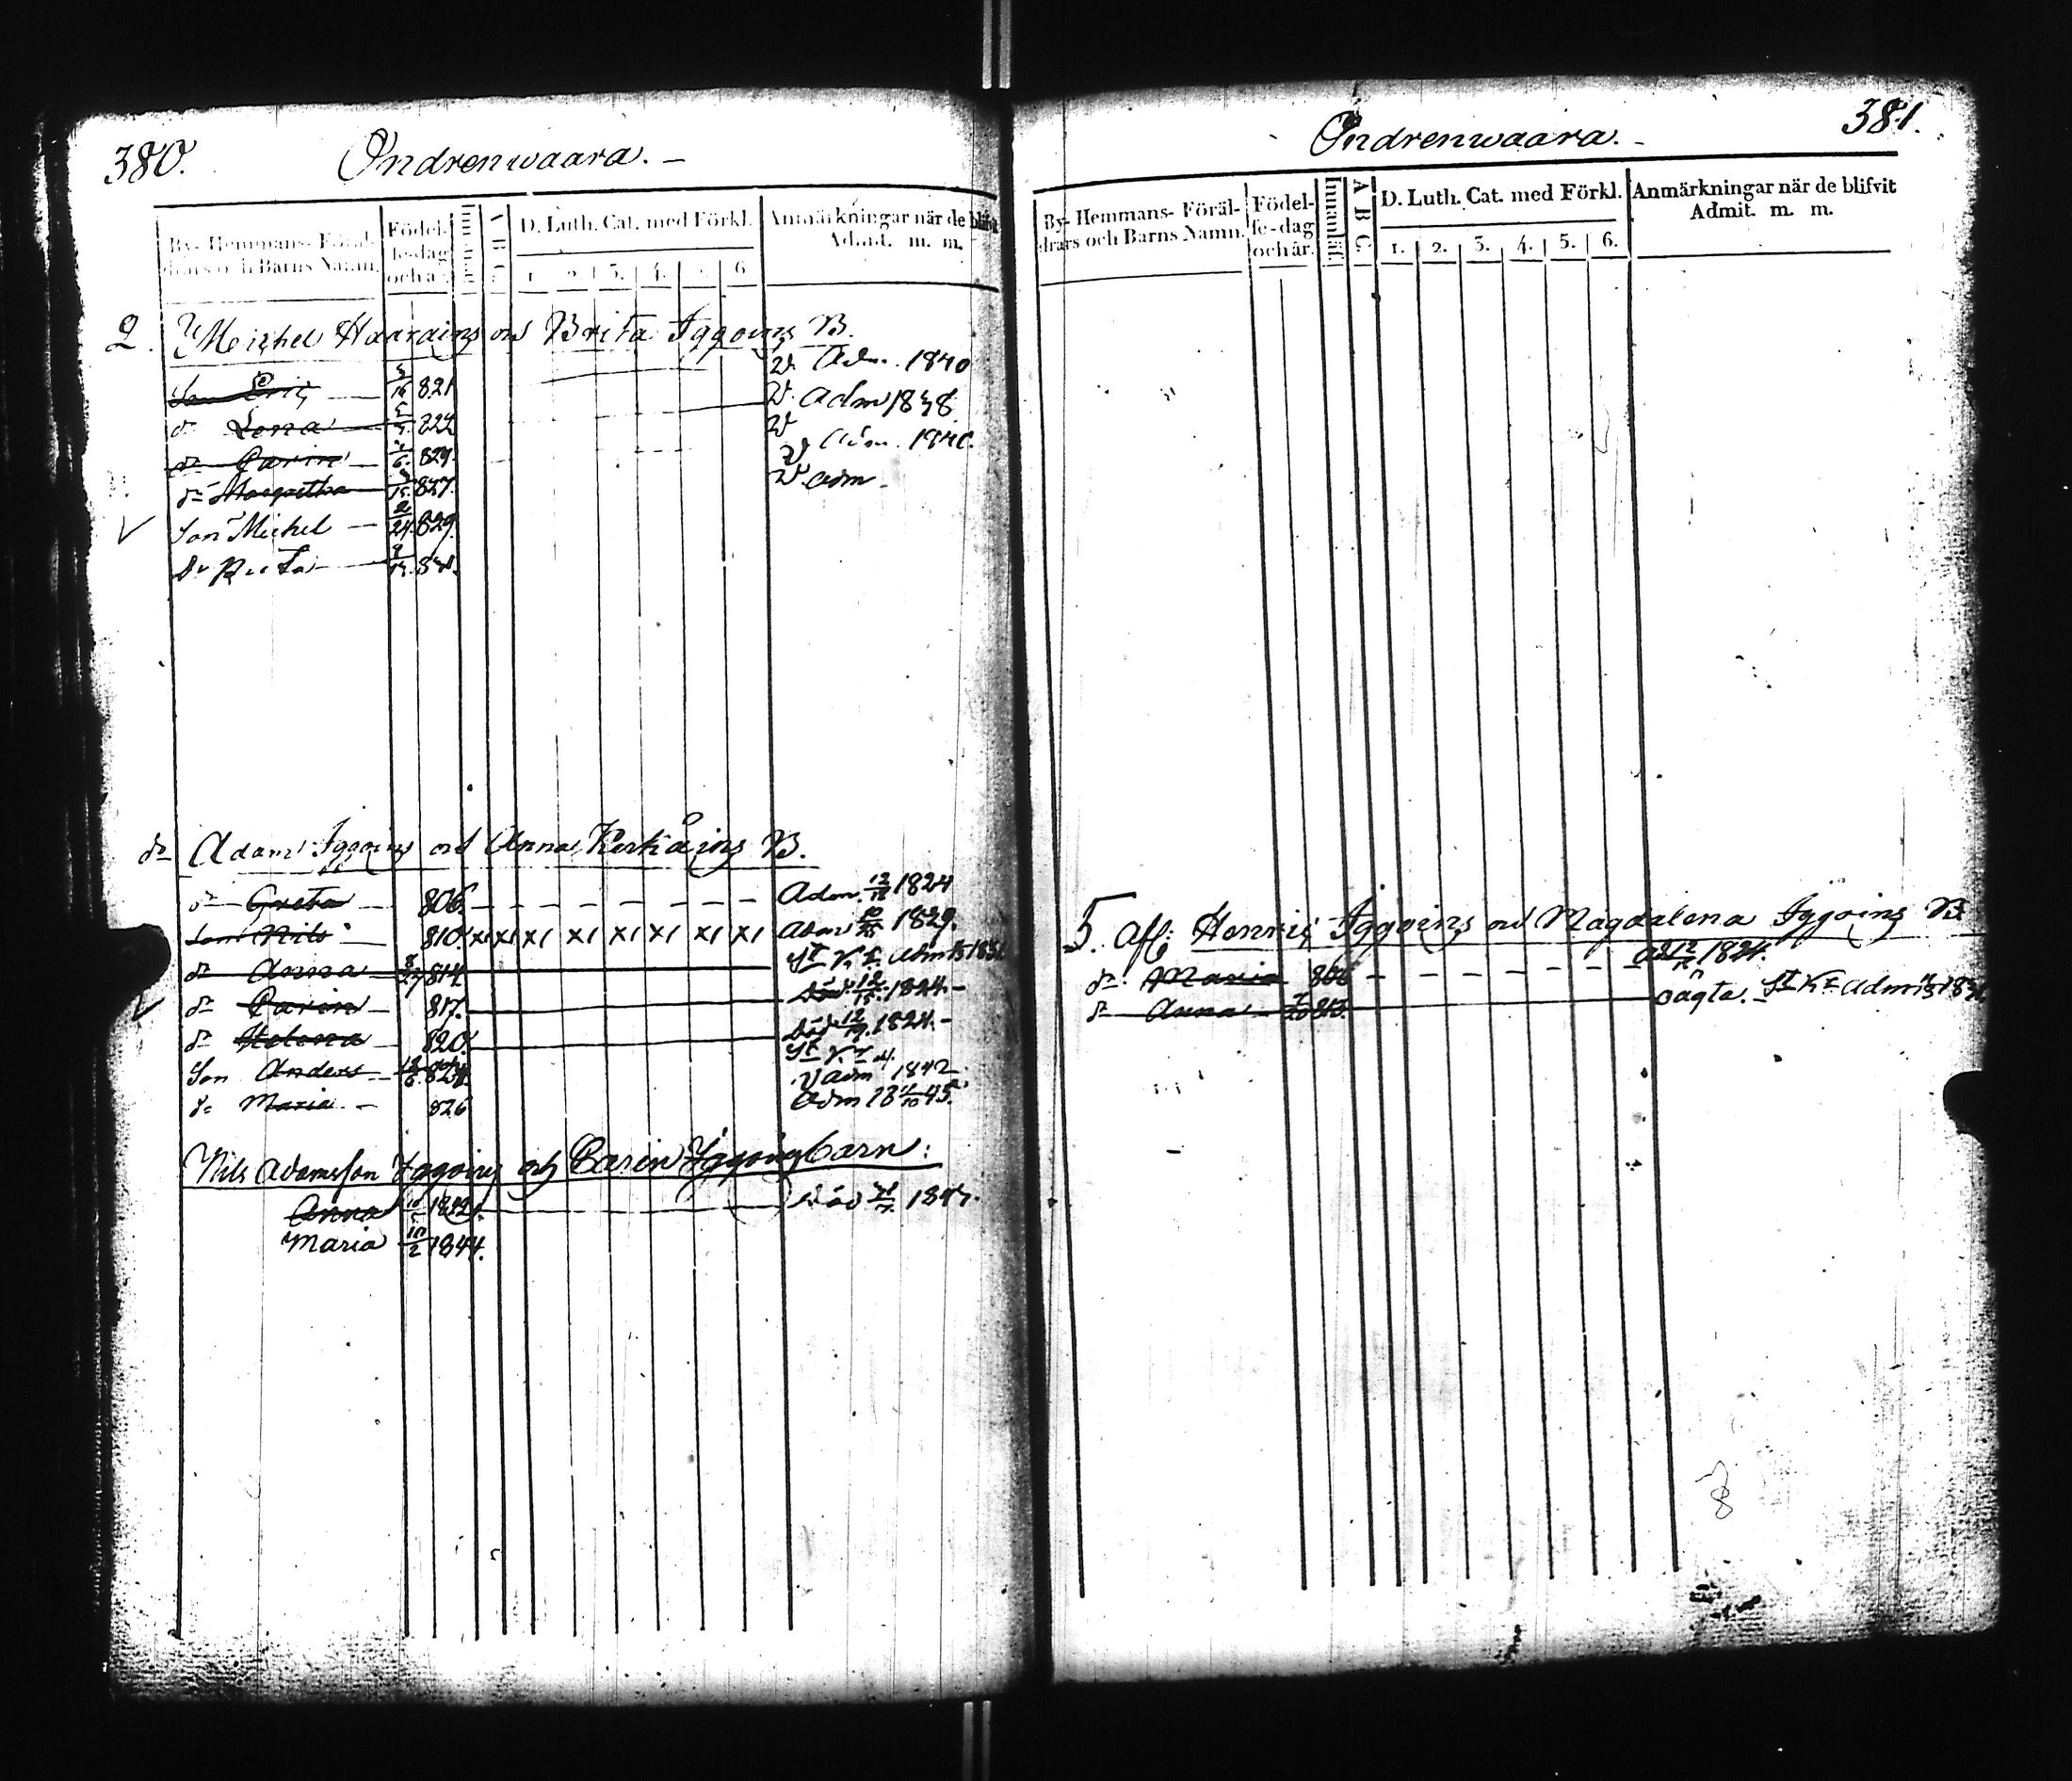 380. Ondrenwaara. —
By- Hemmans- Föräl- drars och Barns Namn.
Födel- se-dag och år.
Innanläs.
A B C.
D. Luth. Cat. med Förkl.
1. 2. 3. 4. 5. 6.
Anmärkningar när de blifvit Admit. m. m.
2. Michel Haaraings och Brita Iggoins B.
Son Eric 821 Adm. 1840
dr Lena 5 Adm 1838
dr Carin 6 Adm.
dr Margretha 15 827. adm
Son Michel 24 829.
dr
dr Adam Iggoins och Anna Kerkäins B.
dr Greta 806. Adm. 12 1824
Son Nils 810. x1 x1 x1 x1 x1 x1 x1 x1 Adm 1829.
dr Anna 8 27 814
dr Carin 817. Död 12 15. 1824. —
dr Helena 820. Död 12 19. 1824. —
Son Anders adm 1842.
dr Maria 826 Adm 18 45.
Nils Adamsson Iggoing och Carin Iggoing barn:
Anna 10 1842. död
Maria 10 2 1844.
Ondrenwaara. 381.
By- Hemmans- Föräl- drars och Barns Namn.
Födel- se-dag och år.
Innanläs.
A B C.
D. Luth. Cat. med Förkl.
1. 2. 3. 4. 5. 6.
Anmärkningar när de blifvit Admit. m. m.
5. Afl. Henric Iggoings och Magdalena Iggoins B.
dr Maria 806 12 1824.
dr Anna oägta.